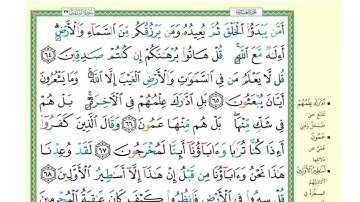 أَمَّن يَبْدَؤُا۟ ٱلْخَلْقَ ثُمَّ يُعِيدُهُۥ وَمَن يَرْزُقُكُم مِّنَ ٱلسَّمَآءِ وَٱلْأَرْضِ
أَءِلَـٰهٌ مَّعَ ٱللَّهِ قُلْ هَاتُوا۟ بُرْهَـٰنَكُمْ إِن كُنتُمْ صَـٰدِقِينَ ٦٤
قُل لَّا يَعْلَمُ مَن فِى ٱلسَّمَـٰوَٰتِ وَٱلْأَرْضِ ٱلْغَيْبَ إِلَّا ٱللَّهُ وَمَا يَشْعُرُونَ
أَيَّانَ يُبْعَثُونَ ٦٥ بَلِ ٱدَّٰرَكَ عِلْمُهُمْ فِى ٱلْـَٔاخِرَةِ بَلْ هُمْ
فِى شَكٍّ مِّنْهَا بَلْ هُم مِّنْهَا عَمُونَ ٦٦ وَقَالَ ٱلَّذِينَ كَفَرُوٓا۟
أَءِذَا كُنَّا تُرَٰبًا وَءَابَآؤُنَآ أَئِنَّا لَمُخْرَجُونَ ٦٧ لَقَدْ وُعِدْنَا
هَـٰذَا نَحْنُ وَءَابَآؤُنَا مِن قَبْلُ إِنْ هَـٰذَآ إِلَّآ أَسَـٰطِيرُ ٱلْأَوَّلِينَ ٦٨
قُلْ سِيرُوا۟ فِى ٱلْأَرْضِ فَٱنظُرُوا۟ كَيْفَ كَانَ عَـٰقِبَةُ ٱلْمُجْرِمِينَ